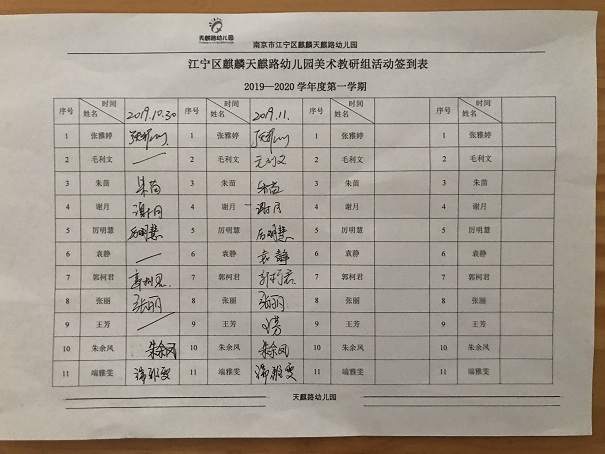 天麒路幼儿园
南京市江宁区麒麟天麒路幼儿园
江宁区麒麟天麒路幼儿园美术教研组活动签到表
2019—2020 学年度第一学期
序号 时间 姓名 2019.10.30 序号 时间 姓名 2019.11. 序号 时间 姓名 序号 时间 姓名
1 张雅婷 张雅婷 1 张雅婷 张雅婷 1 张雅婷 1
2 毛利文 — 2 毛利文 毛利文 2 毛利文 2
3 朱苗 朱苗 3 朱苗 朱苗 3 朱苗 3
4 谢月 谢月 4 谢月 谢月 4 谢月 4
5 厉明慧 厉明慧 5 厉明慧 厉明慧 5 厉明慧 5
6 袁静 — 6 袁静 袁静 6 袁静 6
7 郭柯君 郭柯君 7 郭柯君 郭柯君 7 郭柯君 7
8 张丽 张丽 8 张丽 张丽 8 张丽 8
9 王芳 — 9 王芳 王芳 9 王芳 9
10 朱余凤 朱余凤 10 朱余凤 朱余凤 10 朱余凤 10
11 端雅雯 端雅雯 11 端雅雯 端雅雯 11 端雅雯 11
天麒路幼儿园